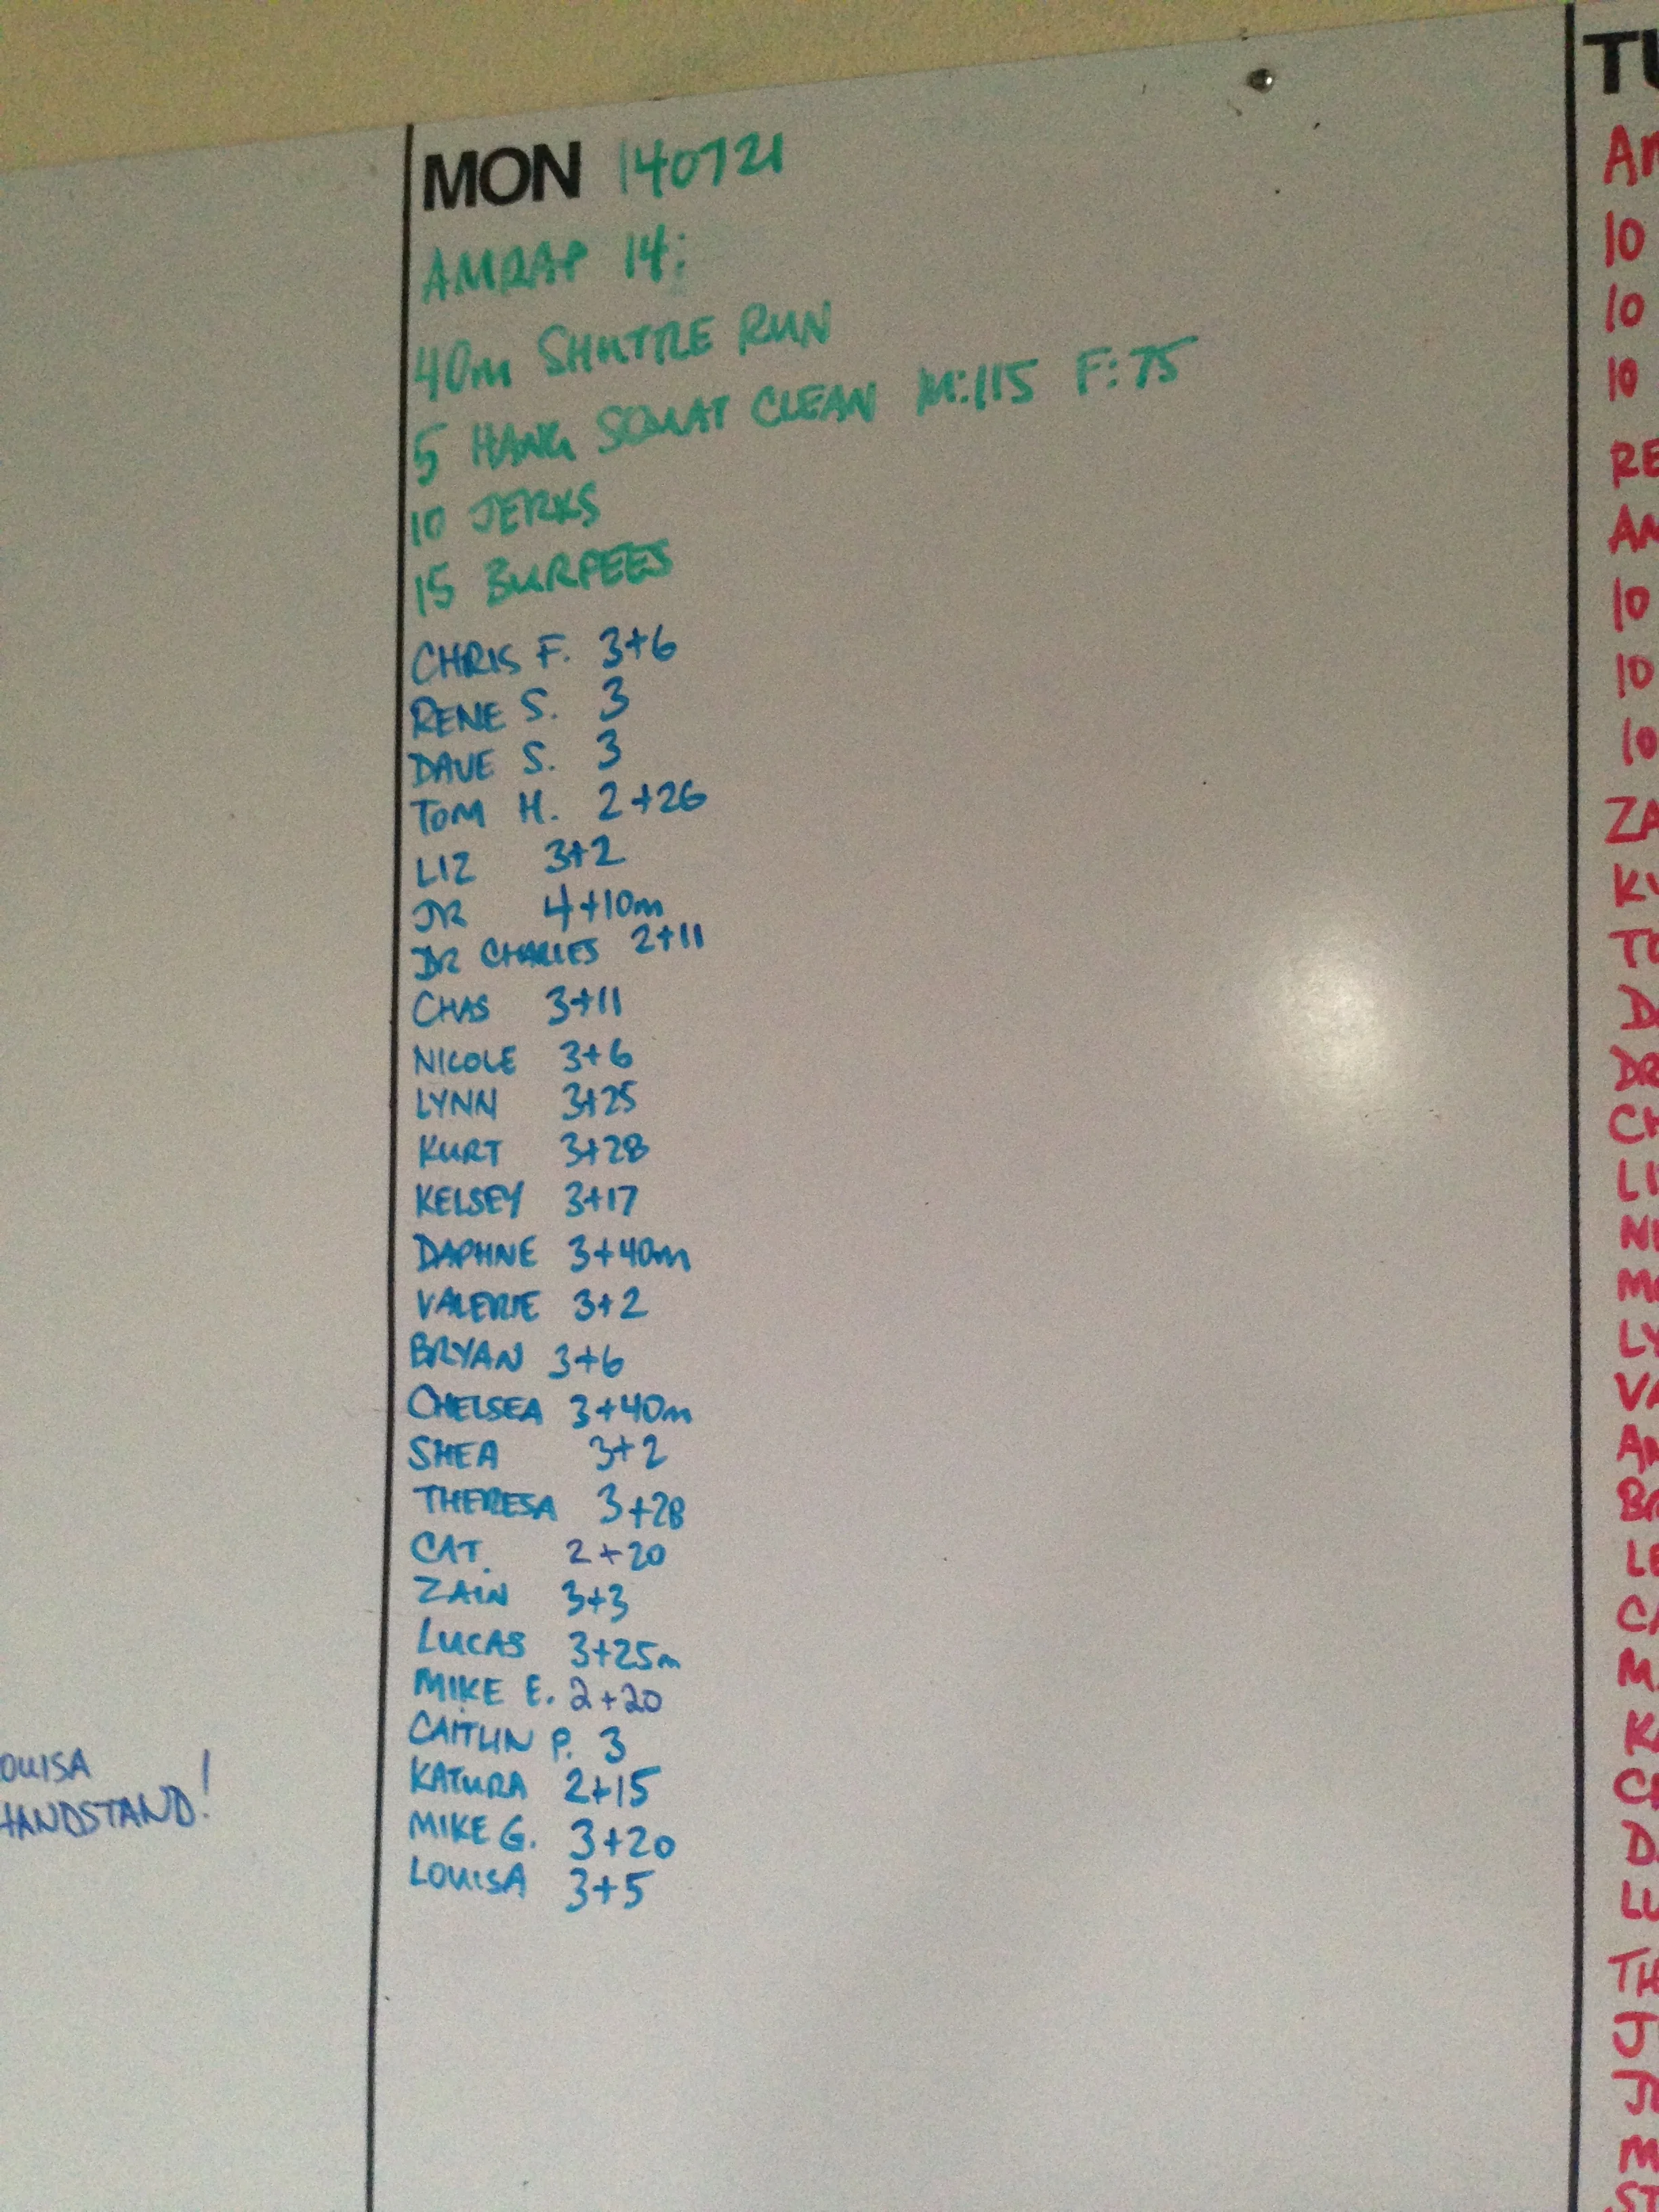 OUISA
HANDSTAND!
MON 140721
AMRAP 14:
40m SHUTTLE RUN
5 HANG SQUAT CLEAN M:115 F:75
10 JERKS
15 BURPEES
CHRIS F. 3+6
RENE S. 3
DAVE S. 3
TOM H. 2+26
LIZ 3+2
JR 4+10m
DR CHARLES 2+11
CHAS 3+11
NICOLE 3+6
LYNN 3+25
KURT 3+28
KELSEY 3+17
DAPHNE 3+40m
VALERIE 3+2
BRYAN 3+6
CHELSEA 3+40m
SHEA 3+2
THERESA 3+28
CAT. 2+20
ZAIN 3+3
LUCAS 3+25m
MIKE E. 2+20
CAITLIN P. 3
KATURA 2+15
MIKE G. 3+20
LOUISA 3+5
TU
AM
10
10
10
RE
AM
10
10
10
ZA
KY
TO
DA
DR
CH
LI
NI
MO
LY
VA
AN
BR
LE
CA
M
K
CH
D
LU
TH
J
JR
M
ST